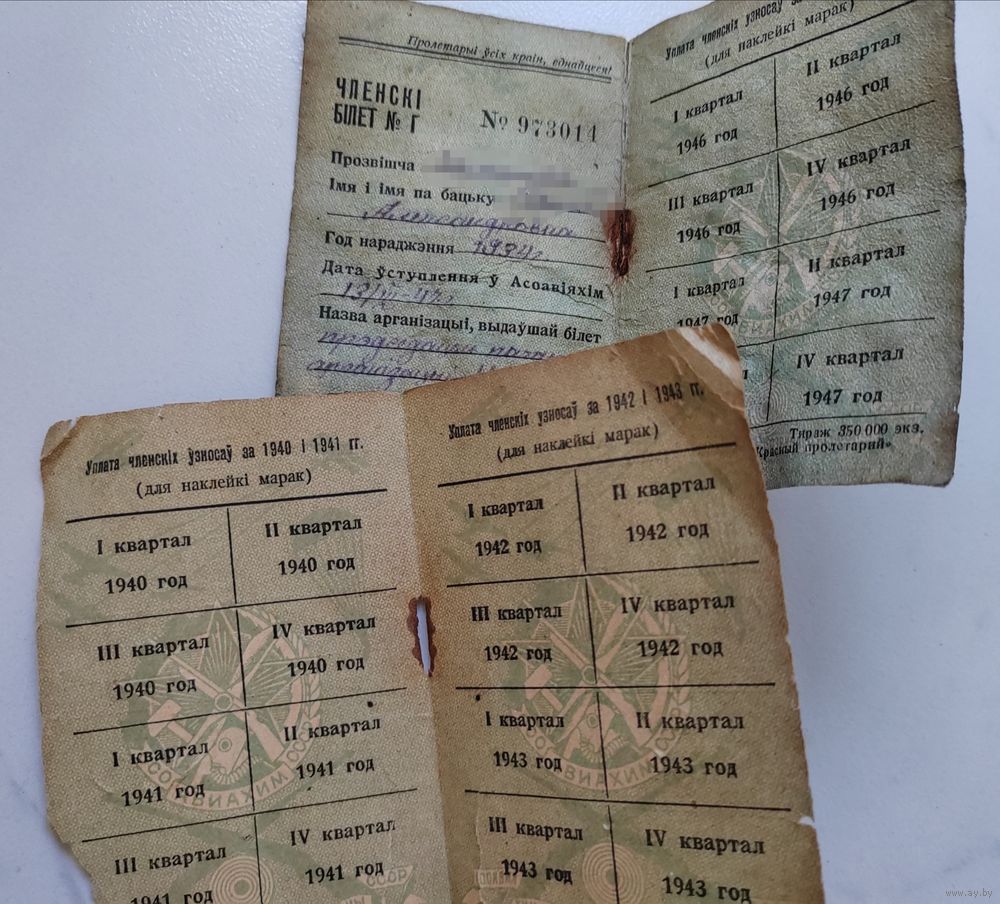 Пролетарыі ўсіх краін, еднайцеся!
ЧЛЕНСКІ
БІЛЕТ № Г
№ 973014
Прозвішча
Імя і імя па бацьку
Александровна
Год нараджэння 1934 г.
Дата ўступлення ў Асоавіяхім
Назва арганізацыі, выдаўшай білет
Уплата членскіх узносаў за
(для наклейкі марак)
I квартал
1946 год
II квартал
1946 год
III квартал
1946 год
IV квартал
1946 год
I квартал
1947 год
II квартал
1947 год
IV квартал
1947 год
Тираж 350 000 экз.
Красный пролетарий»
Уплата членскіх ўзносаў за 1940 і 1941 гг.
(для наклейкі марак)
I квартал
1940 год
II квартал
1940 год
III квартал
1940 год
IV квартал
1940 год
I квартал
1941 год
II квартал
1941 год
III квартал
1941 год
IV квартал
1941 год
ОСОАВИАХИМ СССР
Уплата членскіх узносаў за 1942 і 1943 гг.
(для наклейкі марак)
I квартал
1942 год
II квартал
1942 год
III квартал
1942 год
IV квартал
1942 год
I квартал
1943 год
II квартал
1943 год
III квартал
1943 год
IV квартал
1943 год
ОСОАВИАХИМ СССР
www.ay.by